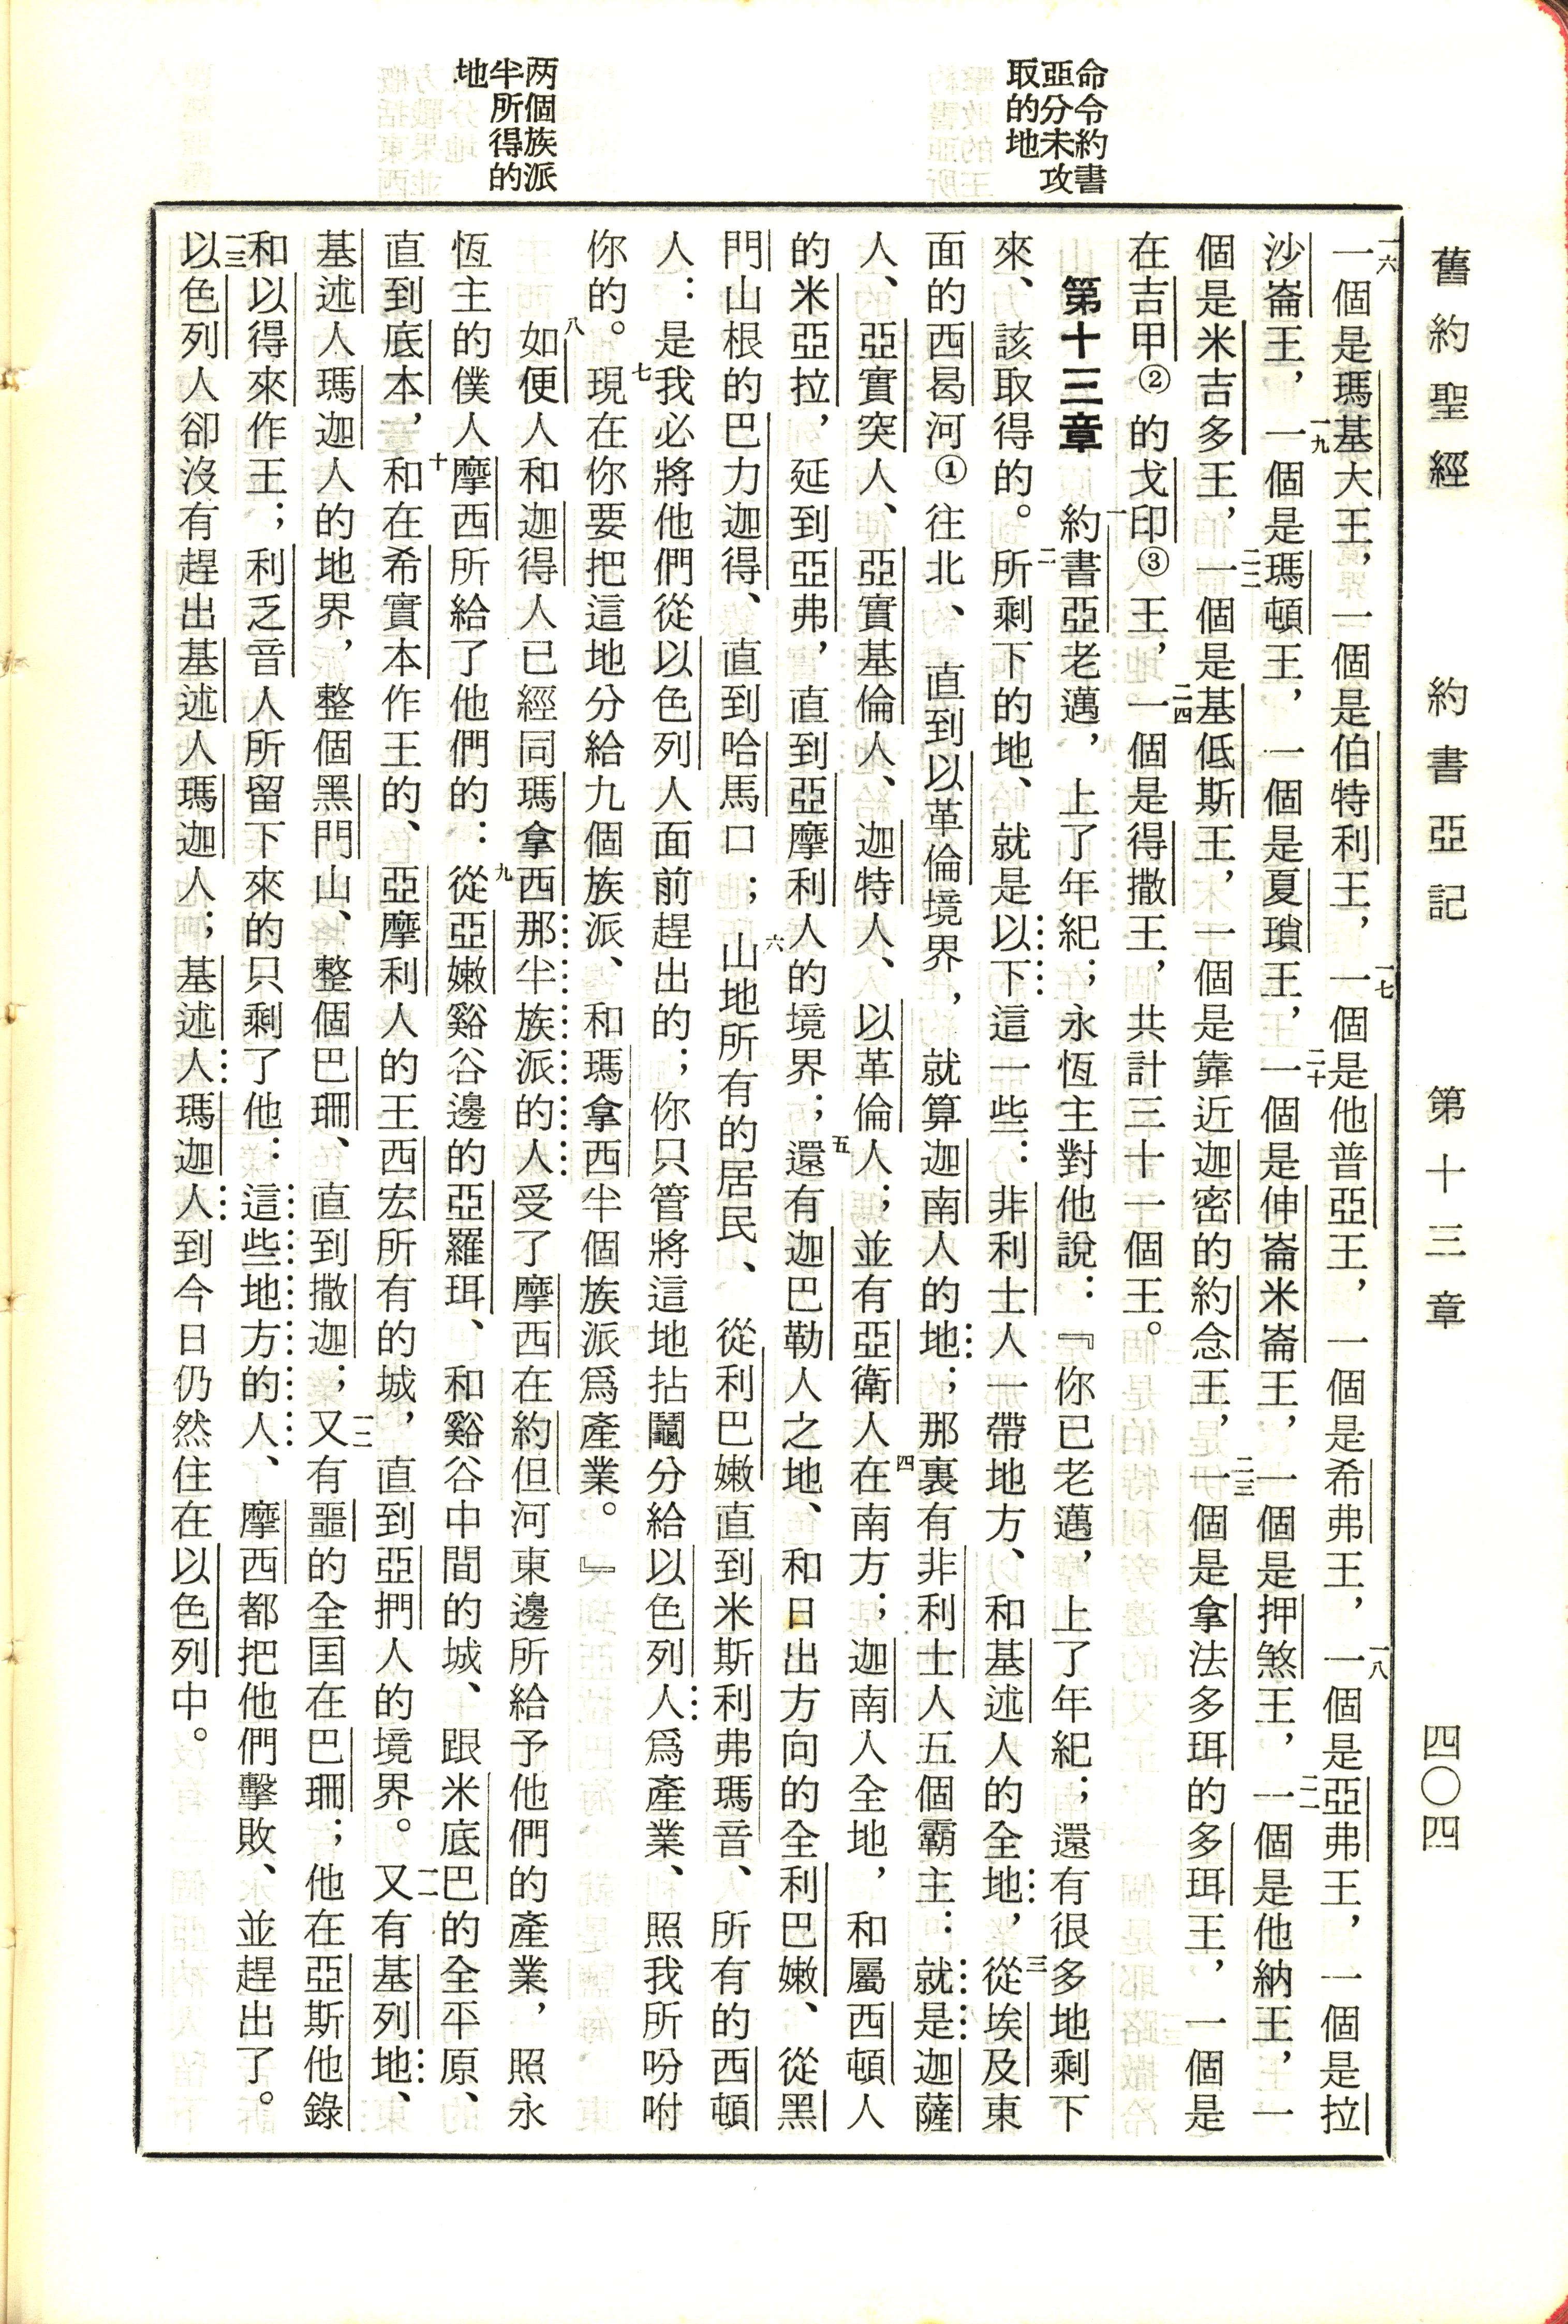 舊約聖經　約書亞記　第十三章　四〇四
命令約書
亞分未攻
取的地
两個族派
半所得的
地
一六一個是瑪基大王，一個是伯特利王，一七一個是他普亞王，一個是希弗王，一八一個是亞弗王，一個是拉
沙崙王，一九一個是瑪頓王，一個是夏瑣王，二十一個是伸崙米崙王，一個是押煞王，二一一個是他納王，一
個是米吉多王，二二一個是基低斯王，一個是靠近迦密的約念王，二三一個是拿法多珥的多珥王，一個是
在吉甲②的戈印③王，二四一個是得撒王，共計三十一個王。
第十三章　一約書亞老邁，上了年紀；永恆主對他說：『你已老邁，上了年紀；還有很多地剩下
來、該取得的。二所剩下的地、就是以下這一些：非利士人一帶地方、和基述人的全地，三從埃及東
面的西曷河①往北、直到以革倫境界，就算迦南人的地；那裏有非利士人五個霸主：就是迦薩
人、亞實突人、亞實基倫人、迦特人、以革倫人；並有亞衛人四在南方；迦南人全地，和屬西頓人
的米亞拉，延到亞弗，直到亞摩利人的境界；五還有迦巴勒人之地、和日出方向的全利巴嫩、從黑
門山根的巴力迦得、直到哈馬口；六山地所有的居民、從利巴嫩直到米斯利弗瑪音、所有的西頓
人：是我必將他們從以色列人面前趕出的；你只管將這地拈鬮分給以色列人爲產業、照我所吩咐
你的。七現在你要把這地分給九個族派、和瑪拿西半個族派爲產業。』
八如便人和迦得人已經同瑪拿西那半族派的人受了摩西在約但河東邊所給予他們的產業，照永
恆主的僕人摩西所給了他們的：九從亞嫩谿谷邊的亞羅珥、和谿谷中間的城、跟米底巴的全平原、
直到底本，十和在希實本作王的、亞摩利人的王西宏所有的城，直到亞捫人的境界。一一又有基列地、
基述人瑪迦人的地界，整個黑門山、整個巴珊、直到撒迦；一二又有噩的全国在巴珊；他在亞斯他錄
和以得來作王；利乏音人所留下來的只剩了他：這些地方的人、摩西都把他們擊敗、並趕出了。
一三以色列人卻沒有趕出基述人瑪迦人；基述人瑪迦人到今日仍然住在以色列中。